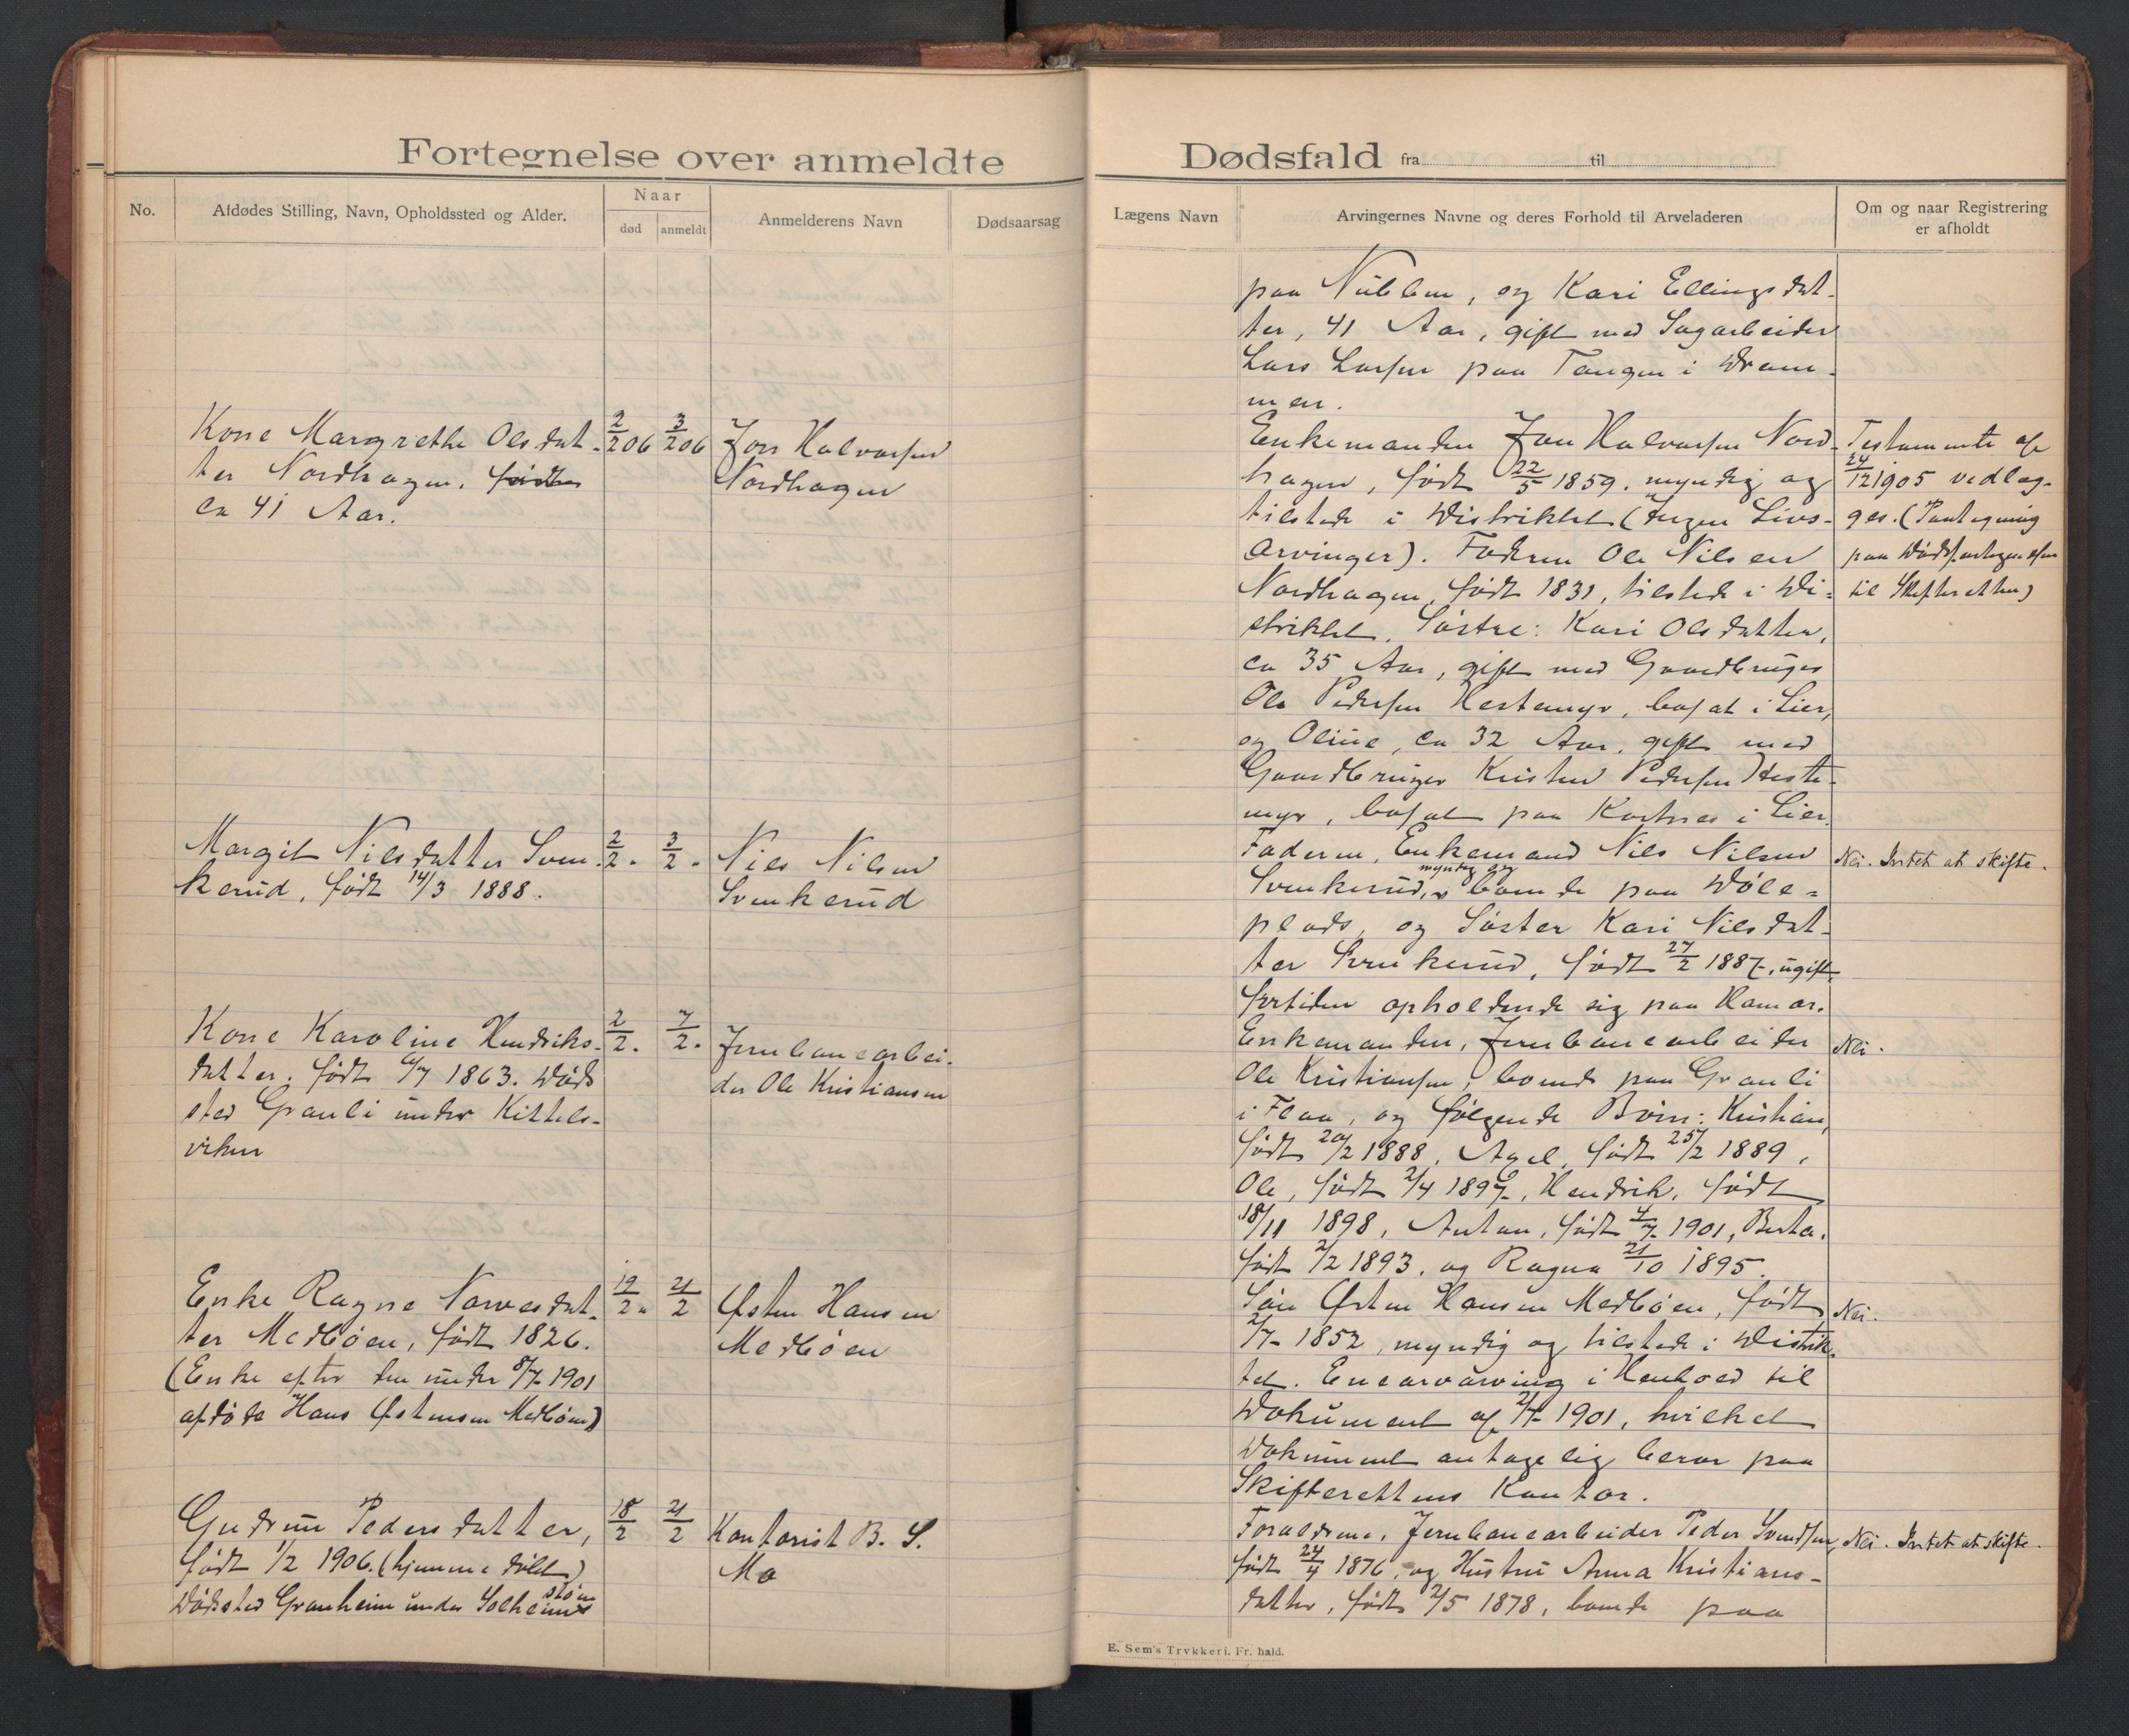 Fortegnelse over anmeldte
No.
Afdødes Stilling, Navn, Opholdssted og Alder.
Naar
død
anmeldt
Anmelderens Navn
Dødsaarsag
Kone Margrethe Olsdat-
ter Nordhagen, født
ca 41 Aar.
2/2 06
3/2 06
Jon Halvorsen
Nordhagen
Margit Nilsdatter Sven-
kerud, født 14/3 1888.
2/2 "
3/2 "
Nils Nilsen
Svenkerud
Kone Karoline Hendriks-
datter, født 6/7 1863. Døds
sted Granli under Kittels-
viken
2/2 "
7/2 "
Jernbanearbei-
der Ole Kristiansen
Enke Ragne Narvesdat-
ter Medbøen, født 1826.
(Enke efter den under 8/7 1901
afdøde Hans Østensen Medbøen)
19/2 "
21/2
Østen Hansen
Medbøen
Gudrun Pedersdatter,
født 1/2 1906. (hjemmedøbt)
Dødssted Granheim under Solheim
støen
18/2
21/2
Kontorist B. S.
Mo
Dødsfald fra til
Lægens Navn
Arvingernes Navne og deres Forhold til Arveladeren
Om og naar Registrering
er afholdt
paa , og Kari Ellingsdat-
ter, 41 Aar, gift med Sagarbeider
Lars Larsen paa Tangen i Dram-
men.
Enkemanden Jon Halvorsen Nord-
hagen, født 22/5 1859. myndig og
tilstede i Distriktet (Ingen Livs-
arvinger). Faderen Ole Nilsen
Nordhagen, født 1831, tilstede i Di-
striktet. Søstre: Kari Olsdatter,
ca 35 Aar, gift med Gaardbruger
Ole Pedersen Hestemyr, bosat i Lier,
og Oline, ca 32 Aar, gift med
Gaardbruger Kristen Pedersen Heste-
myr, bosat paa i Lier.
Testamente af
24/12 1905 vedlæg-
ges. (Paategning
paa Dødsfaldsanmeldelsen
til Skifteretten)
Faderen, Enkemand Nils Nilsen
myndig og
Svenkerud, boende paa Døle-
plads, og Søster Kari Nilsdat-
ter Svenkerud, født 27/2 1887, ugift,
fortiden opholdende sig paa Hamar.
Nei. Intet at skifte.
Enkemanden, Jernbanearbeider
Ole Kristiansen, boende paa Granli
i Flaa, og følgende Børn: Kristian,
født 20/2 1888, Axel, født 25/2 1889,
Ole, født 2/4 1897, Hendrik, født
18/11 1898, Anton, født 4/7 1901, Berta,
født 2/2 1893, og Ragna 21/10 1895.
Nei.
Søn Østen Hansen Medbøen, født
2/7 1852, myndig og tilstede i Distrik-
tet. Enearvarving i Henhold til
Dokument af 2/7 1901, hvilket
Dokument antagelig beror paa
Skifterettens Kontor.
Nei.
Forældrene, Jernbanearbeider Peder Svendsen,
født 24/4 1876, og Hustru Anna Kristians-
datter, født 2/5 1878, boende paa
Nei. Intet at skifte.
E. Sem's Trykkeri, Fr. hald.